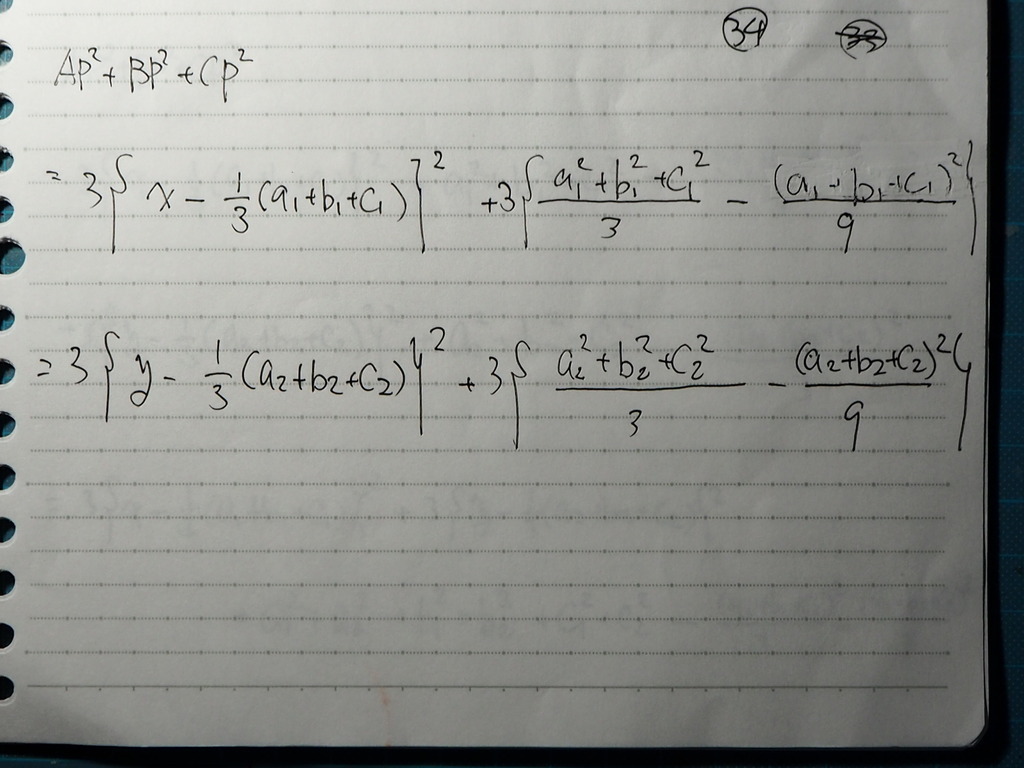 ㉞ ㉝
AP² + BP² + CP²
= 3{x - 1/3(a₁+b₁+c₁)}² + 3{(a₁²+b₁²+c₁²)/3 - (a₁+b₁+c₁)²/9}
= 3{y - 1/3(a₂+b₂+c₂)}² + 3{(a₂²+b₂²+c₂²)/3 - (a₂+b₂+c₂)²/9}